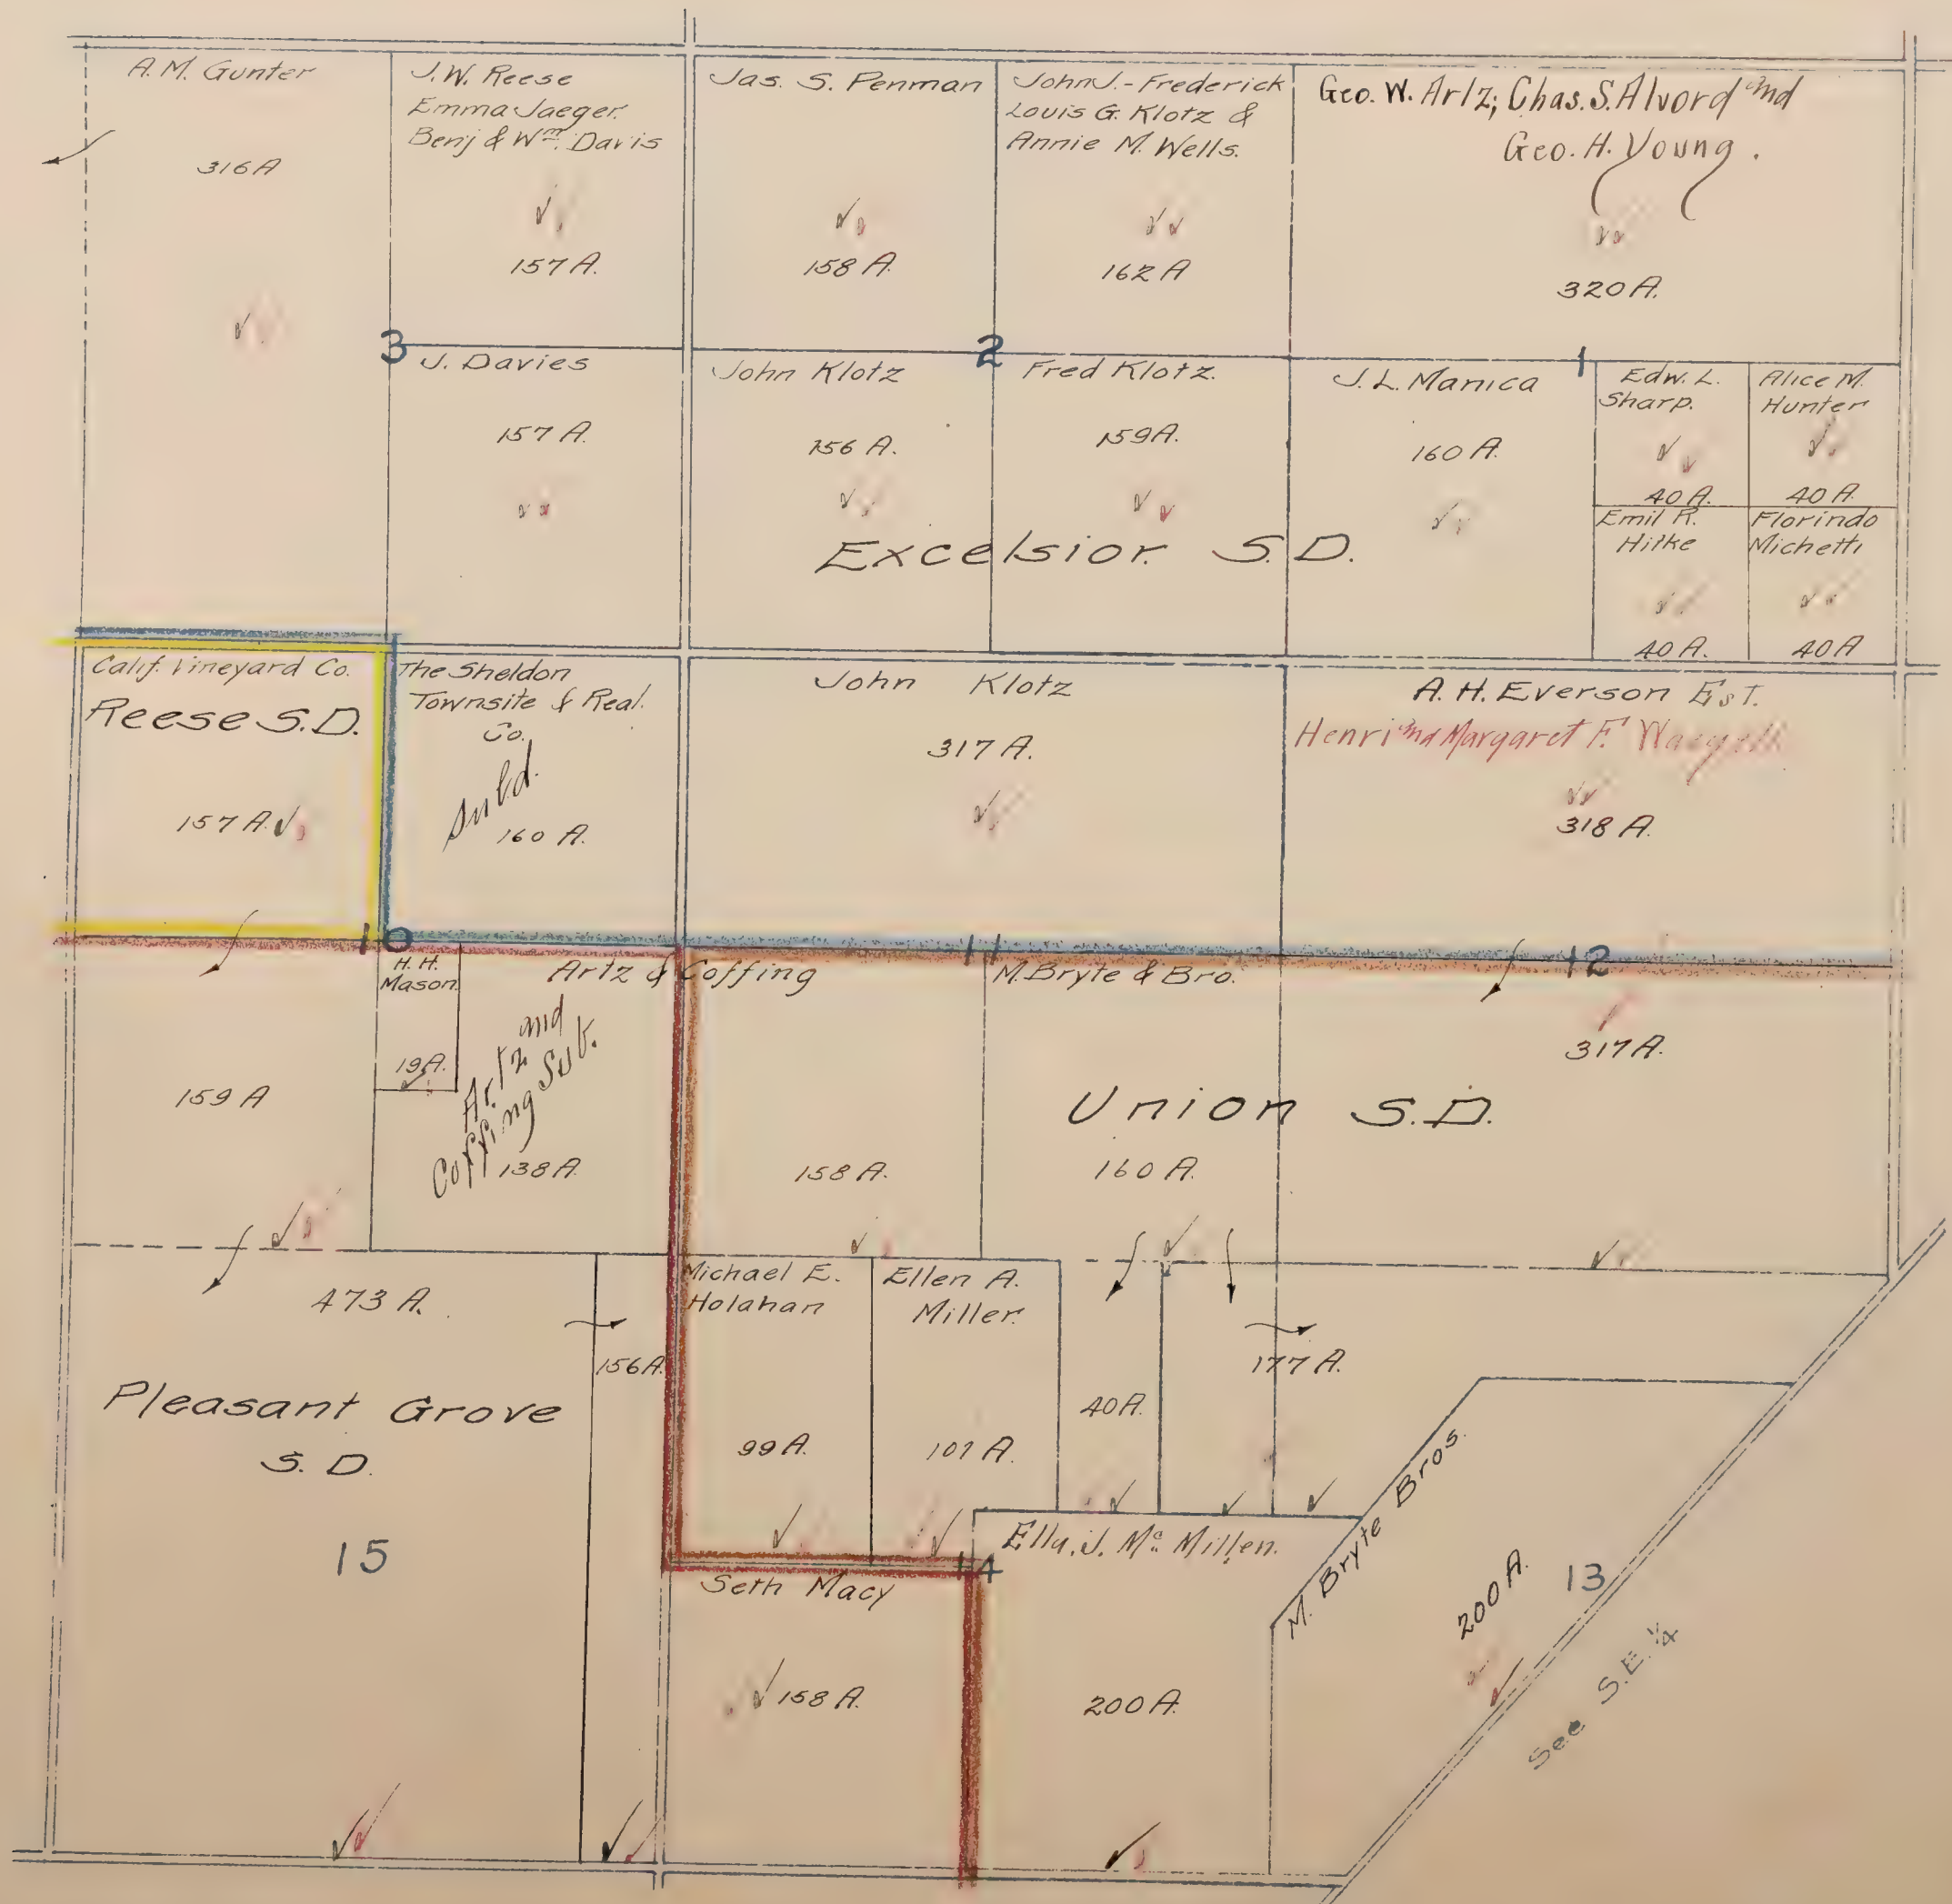 A. M. Gunter
316 A
J. W. Reese
Emma Jaeger.
Benj & Wm. Davis
157 A.
Jas. S. Penman
158 A.
John J. - Frederick
Louis G. Klotz &
Annie M. Wells.
162 A
Geo. W. Artz; Chas. S. Alvord and
Geo. H. Young.
320 A.
3
2
1
J. Davies
157 A.
John Klotz
156 A.
Fred Klotz.
159 A.
J. L. Manica
160 A.
Edw. L.
Sharp.
40 A.
Alice M.
Hunter
40 A.
Emil R.
Hitke
40 A.
Florindo
Michetti
40 A
Excelsior S.D.
Calif. Vineyard Co.
Reese S.D.
157 A.
The Sheldon
Townsite & Real.
Co.
Subd.
160 A.
John Klotz
317 A.
A. H. Everson Est.
Henri and Margaret F.
318 A.
10
11
12
159 A
H. H.
Mason
19 A.
Artz & Coffing
Artz and
Coffing Sub.
138 A.
158 A.
M. Bryte & Bro.
160 A.
317 A.
Union S.D.
473 A.
156 A.
Pleasant Grove
S. D.
15
Michael E.
Holahan
99 A.
Ellen A.
Miller.
101 A.
40 A.
177 A.
14
Seth Macy
158 A.
Ella. J. Mc Millen.
200 A.
M. Bryte Bros.
200 A.
13
See S.E. 1/4